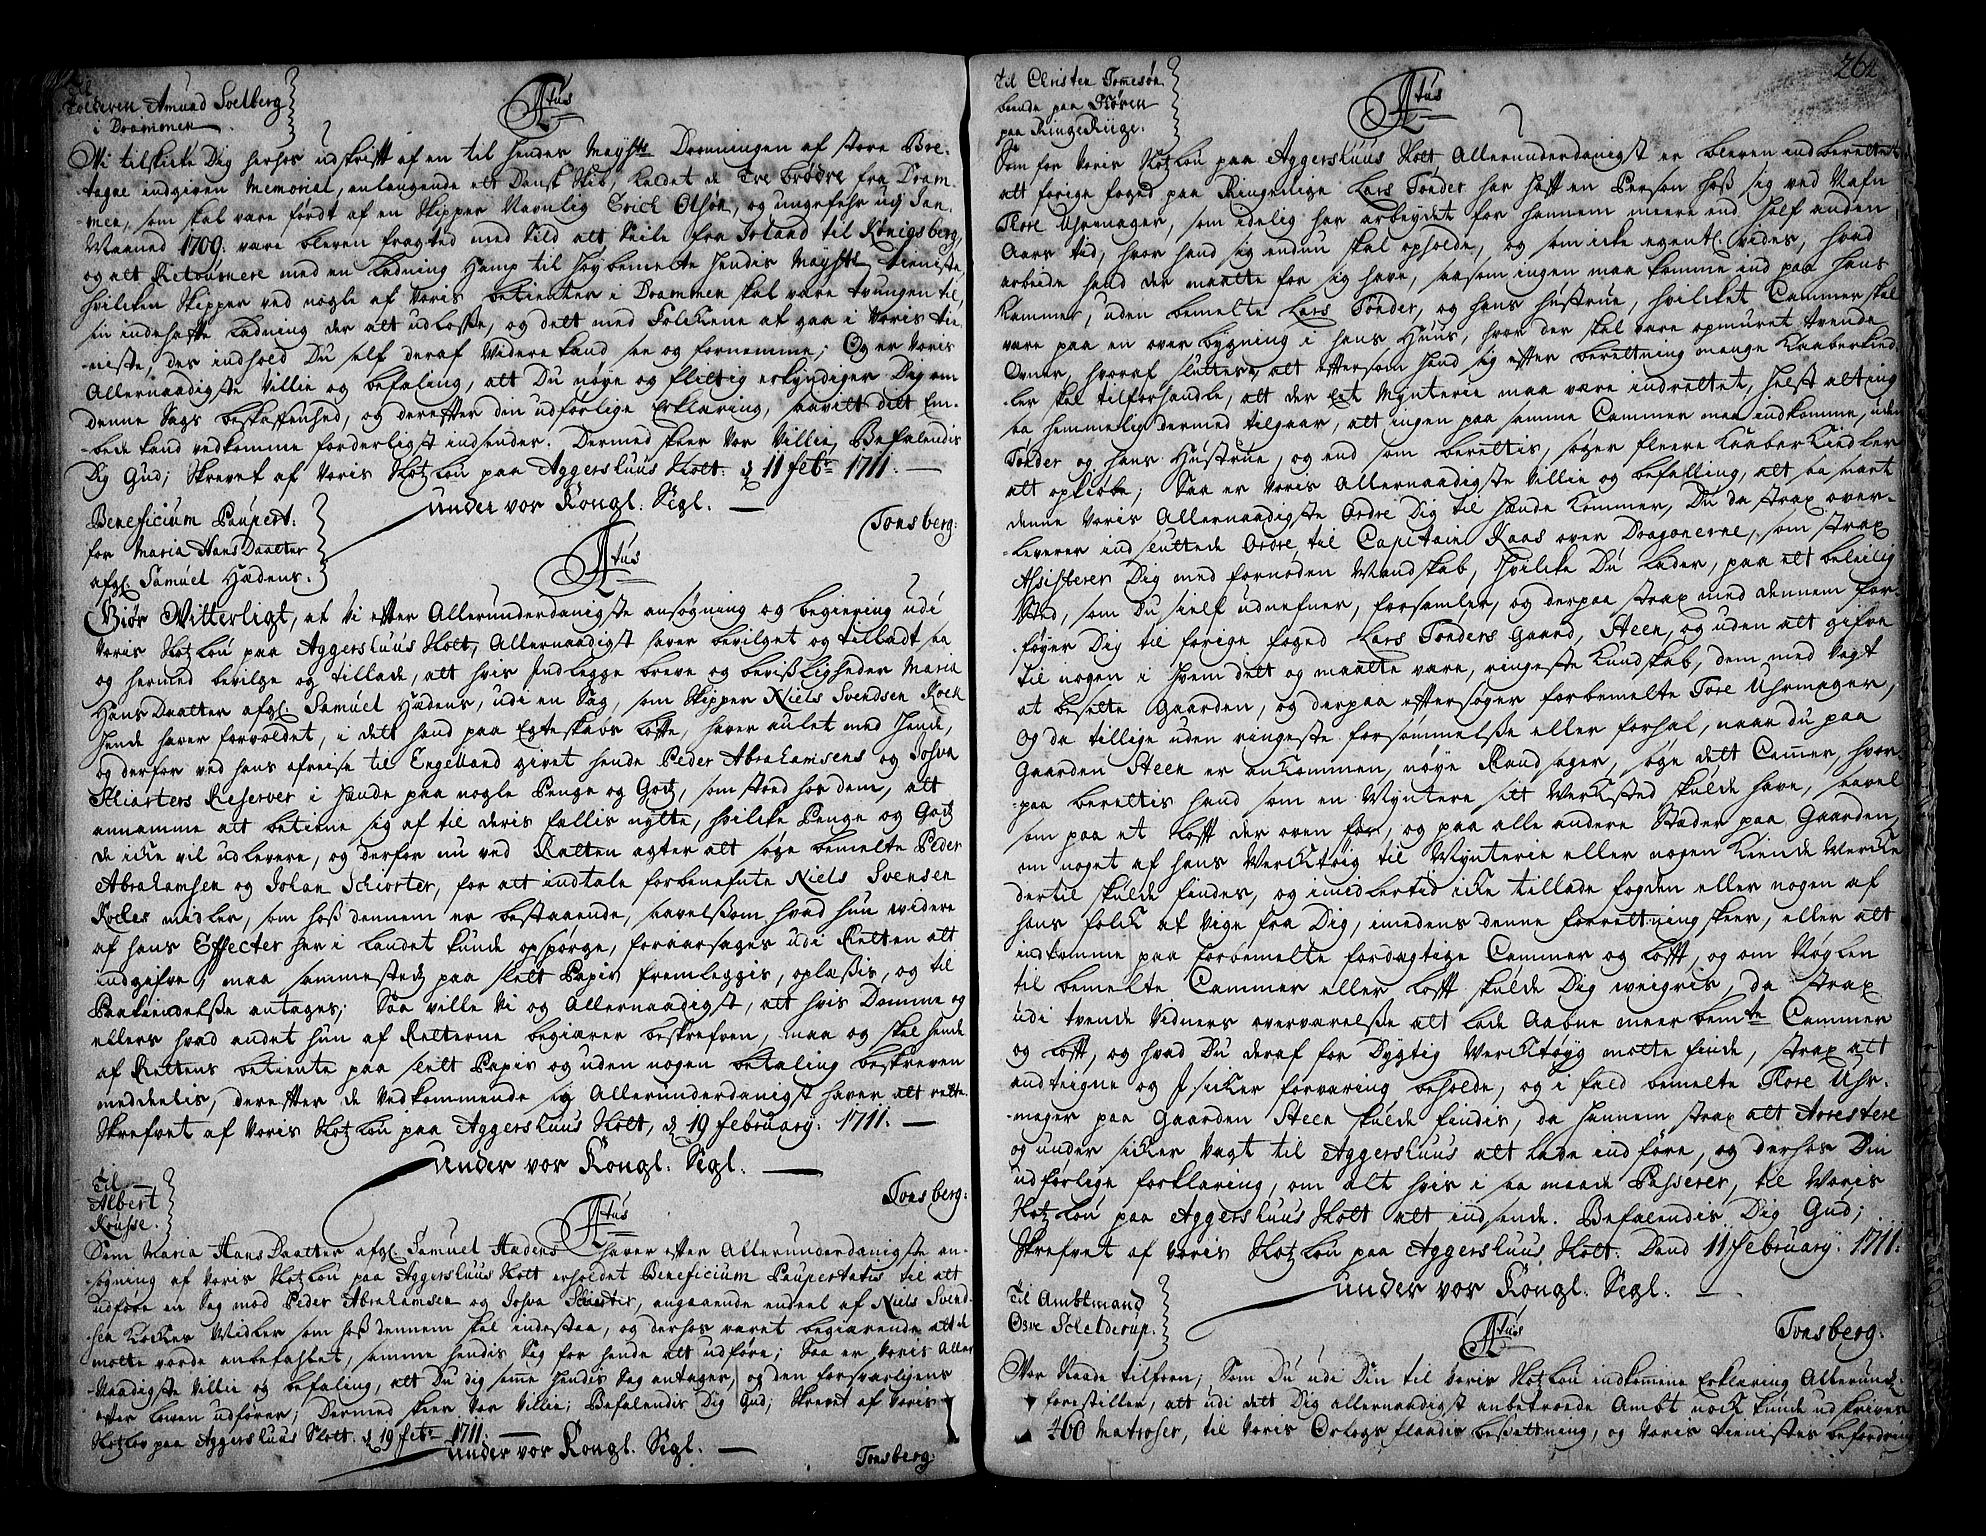 Til
Tolderen Amund Soelberg
i Drammen
Atus
Vi tilskicke Dig herhos udskrifft af en til Hendes Mayhts Dronningen af store Bre-
tagne indgiven Memorial, anlangende ett Dansk Skib, kaldet de Tre Brødre fra Dram-
men, som skal være ført af en Skipper Navnlig Erich Olsøn, og ungefehr udj Jan.
Maaned 1709. være bleven fragted med Sild att Seile fra Irland til Königsberg,
og att Retournere med en Ladning Hamp til Høybemelte Hendes Mayhts tieniste,
hvilcken Skipper ved nogle af Voris betienter i Drammen skal være tvungen til,
sin indehafte Ladning der att udlosse, og dett med Folckene at gaa i Voris tie-
niste, des indhold Du self deraf Videre kand see og fornemme; Og er Voris
Allernaadigste Villie og befaling, att Du nøye og flittig erkyndiger Dig om
denne Sags beskaffenhed, og derefter din udførlige Erklæring, saavitt ditt Em-
bede kand vedkomme forderligst indsender. Dermed skeer Vor Villie, Befalendis
Dig Gud; Skrevet af Voris Slotzlou paa Aggershuus Slott. d 11 febr 1711.
under vor Kongl. Segl.
Tonsberg:
Beneficium Paupert:
for Maria HansDaatter
afgl. Samuel Hædens.
Atus
Giør Vitterligt, at Vi efter Allerunderdanigste ansøgning og begiering udi
Voris Slotzlou paa Aggershuus Slott, Allernaadigst haver bevilget og tilladt saa
og hermed bevilge og tillade, att hvis Indlegge breve og bevisligheder Maria
HansDaatter afgl. Samuel Hædens, udi en Sag, som Skipper Niels Svendsen Kock
Hende haver forvoldet, i dett hand paa Egteskabs løfte, haver aulet med Hende,
og derfor ved hans afreise til Engelland givet hende Peder Abrahamsens og Josva
Schiørters Reserver i Hænde paa nogle Penge og Godz, som stoed hos dem, att
annamme att betiene sig af til deris fællis nytte, hvilcke Penge og Godz
de icke vil udlevere, og derfor nu ved Retten agter att søge bemelte Peder
Abrahamsen og Johan Schiørter, for att indtale forbenefnte Niels Svensen
Kockes midler, som hoß dennem er bestaaende, saavelsom hvad hun videre
af hans Effecter her i Landet kunde opspørge, foraarsages udi Retten att
indgifve, maa sammestedz paa slett Papir fremleggis, oplæsis, og til
Paakiendelse antages; Saa ville Vi og Allernaadigst, att hvis Domme og
ellers hvad andet hun af Retterne begiærer beskrefven, maa og skal hende
af Rettens betiente paa slett Papir og uden nogen betaling beskreven
meddeelis, derefter de Vedkommende sig Allerunderdanigst haver att rette.
Skrefvet af Voris Slotzlou paa Aggershuus Slott, d 19 february: 1711.
under vor Kongl. Segl.
Tonsberg:
Til
Albert
Rousse.
Atus
Som Maria HansDaatter afgl. Samuel Hædens haver efter Allerunderdanigste an-
søgning af Voris Slotzlou paa Aggershuus Slott erholdet Beneficium Paupertatis til att
udføre en Sag mod Peder Abrahamsen og Josva Schiørter, angaaende endeel af Niels Svend-
sen Kockes Midler som hoß dennem skal indestaa, og derhos været begiærende att der
motte vorde anbefahlet, samme hendis Sag for hende att udføre; Saa er Voris Aller-
Naadigste Villie og befaling, att Du dig samme hendis Sag antager, og den forsvarligens
efter Loven udfører; Dermed skeer Vor Villie; Befalendis Dig Gud; Skrevet af Voris
Slotzlov paa Aggershuus Slott. d 19 febr 1711.
under vor Kongl. Segl.
Tonsberg:
262
Til Christen Tomesøn
boende paa Støren
paa RingeRiige.
Atus
Som for Voris Slotzlou paa Aggershuus Slott Allerunderdanigst er bleven indberettet
att forige foged paa Ringerige Lars Tønder har hafft en Person hoß sig ved Nafn
Tore Uhrmager, som idelig har arbeydet for hannem meere end Half anden
Aars tid, hvor hand sig endnu skal opholde, og som icke egentl. vides, hvad
arbeide hand der maatte for sig have, saasom ingen maa komme ind paa hans
Kammer, uden bemelte Lars Tønder, og hans hustrue, hvilcket Cammer skal
være paa en over bygning i hans Huus, hvor der skal være opmuret tvende
Ovner, hvoraf sluttes, att eftersom Hand sig efter beretning mange Kaaberkied-
ler skal tilforhandle, att der Eet Mynterie maa være indrettet, helst alting
saa hemmelig dermed tilgaar, att ingen paa samme Cammer maa indkomme, uden
Tønder og hans Hustrue, og end som berettis, søger fleere Kaaber Kiedler
att opkiøbe; Saa er Voris Allernaadigste Villie og befalling, att saa snart
denne Voris Allernaadigste Ordre Dig til Hænde kommer, Du da strax over-
leverer indsluttede Ordre til Capitain Kaas over Dragonerne, som strax
Assisterer Dig med fornøden Mandskab, Hvilcke Du lader, paa att beleilig
Sted, som Du sielf udnefner, forsamler, og derpaa strax med dennem for-
føyer Dig til forige foged Lars Tønders Gaard, Steen, og uden att gifve
til nogen i hvem dett og maatte være, ringeste kundskab, dem med Vagt
at besette Gaarden, og derpaa eftersøger forbemelte Tore Uhrmager,
Og da tillige uden ringeste forsømmelse eller forhal, naar du paa
Gaarden Steen er ankommen, nøye Randsager, søge dett Cammer, hvor-
paa berettis hand som en Myntere sitt Verksted skulde have, saavel
som paa et Lofft der oven for, og paa alle andre Stæder paa Gaarden,
om noget af hans Vercktøig til Mynterie eller nogen kiende Mercke
dertil skulde findes, og imidlertid icke tillade fogden eller nogen af
hans folck at Vige fra Dig, imedens denne forretning skeer, eller att
indkomme paa forbemelte fordagtige Cammer og Lofft, og om Nøglen
til bemelte Cammer eller Lofft skulde Dig weigris, da strax
udi tvende Vidners overværelse att lade Aabne meer bemte Cammer
og Lofft, og hvad Du deraf for Dygtig Vercktøyg motte finde, strax att
andteigne og J sicker forvaring beholde, og i fald bemelte Tore Uhr-
mager paa Gaarden Steen skulde findis, da hannem strax att Arrestere
og under sicker Vagt til Aggershuus att lade indføre, og derhos Din
udførlige forklaring, om alt hvis i saa maade Passerer, til Voris
Slotzlou paa Aggershuus Slott att indsende. Befalendis Dig Gud;
Skrefvet af Voris Slotzlou paa Aggershuus Slott. Dend 11 february: 1711.
under vor Kongl. Segl.
Tonsberg:
Til Ambtmand
Ove Schelderup.
Atus
Vor Naade tilforn; Som Du udi Din til Voris Slotzlou indkomne Erklæring Allerund.
forestiller, att udi dett Dig allernaadigst anbetroede Ambt nock kunde udskrives
400 Matroser, til Voris Orlogs flaadis besettning, og Voris tienistes befordring